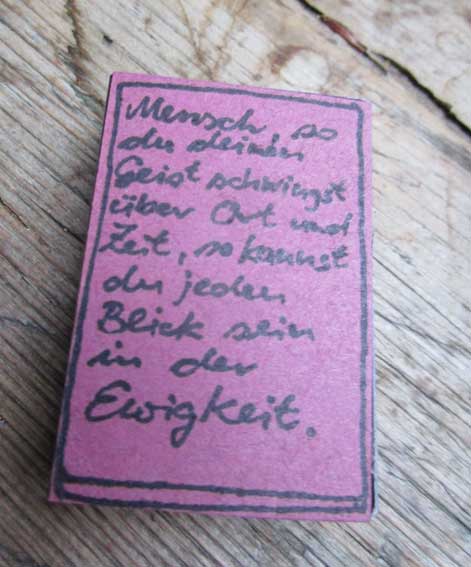 Mensch, so
du deinen
Geist schwingst
über Ort und
Zeit, so kannst
du jeden
Blick sein
in der
Ewigkeit.